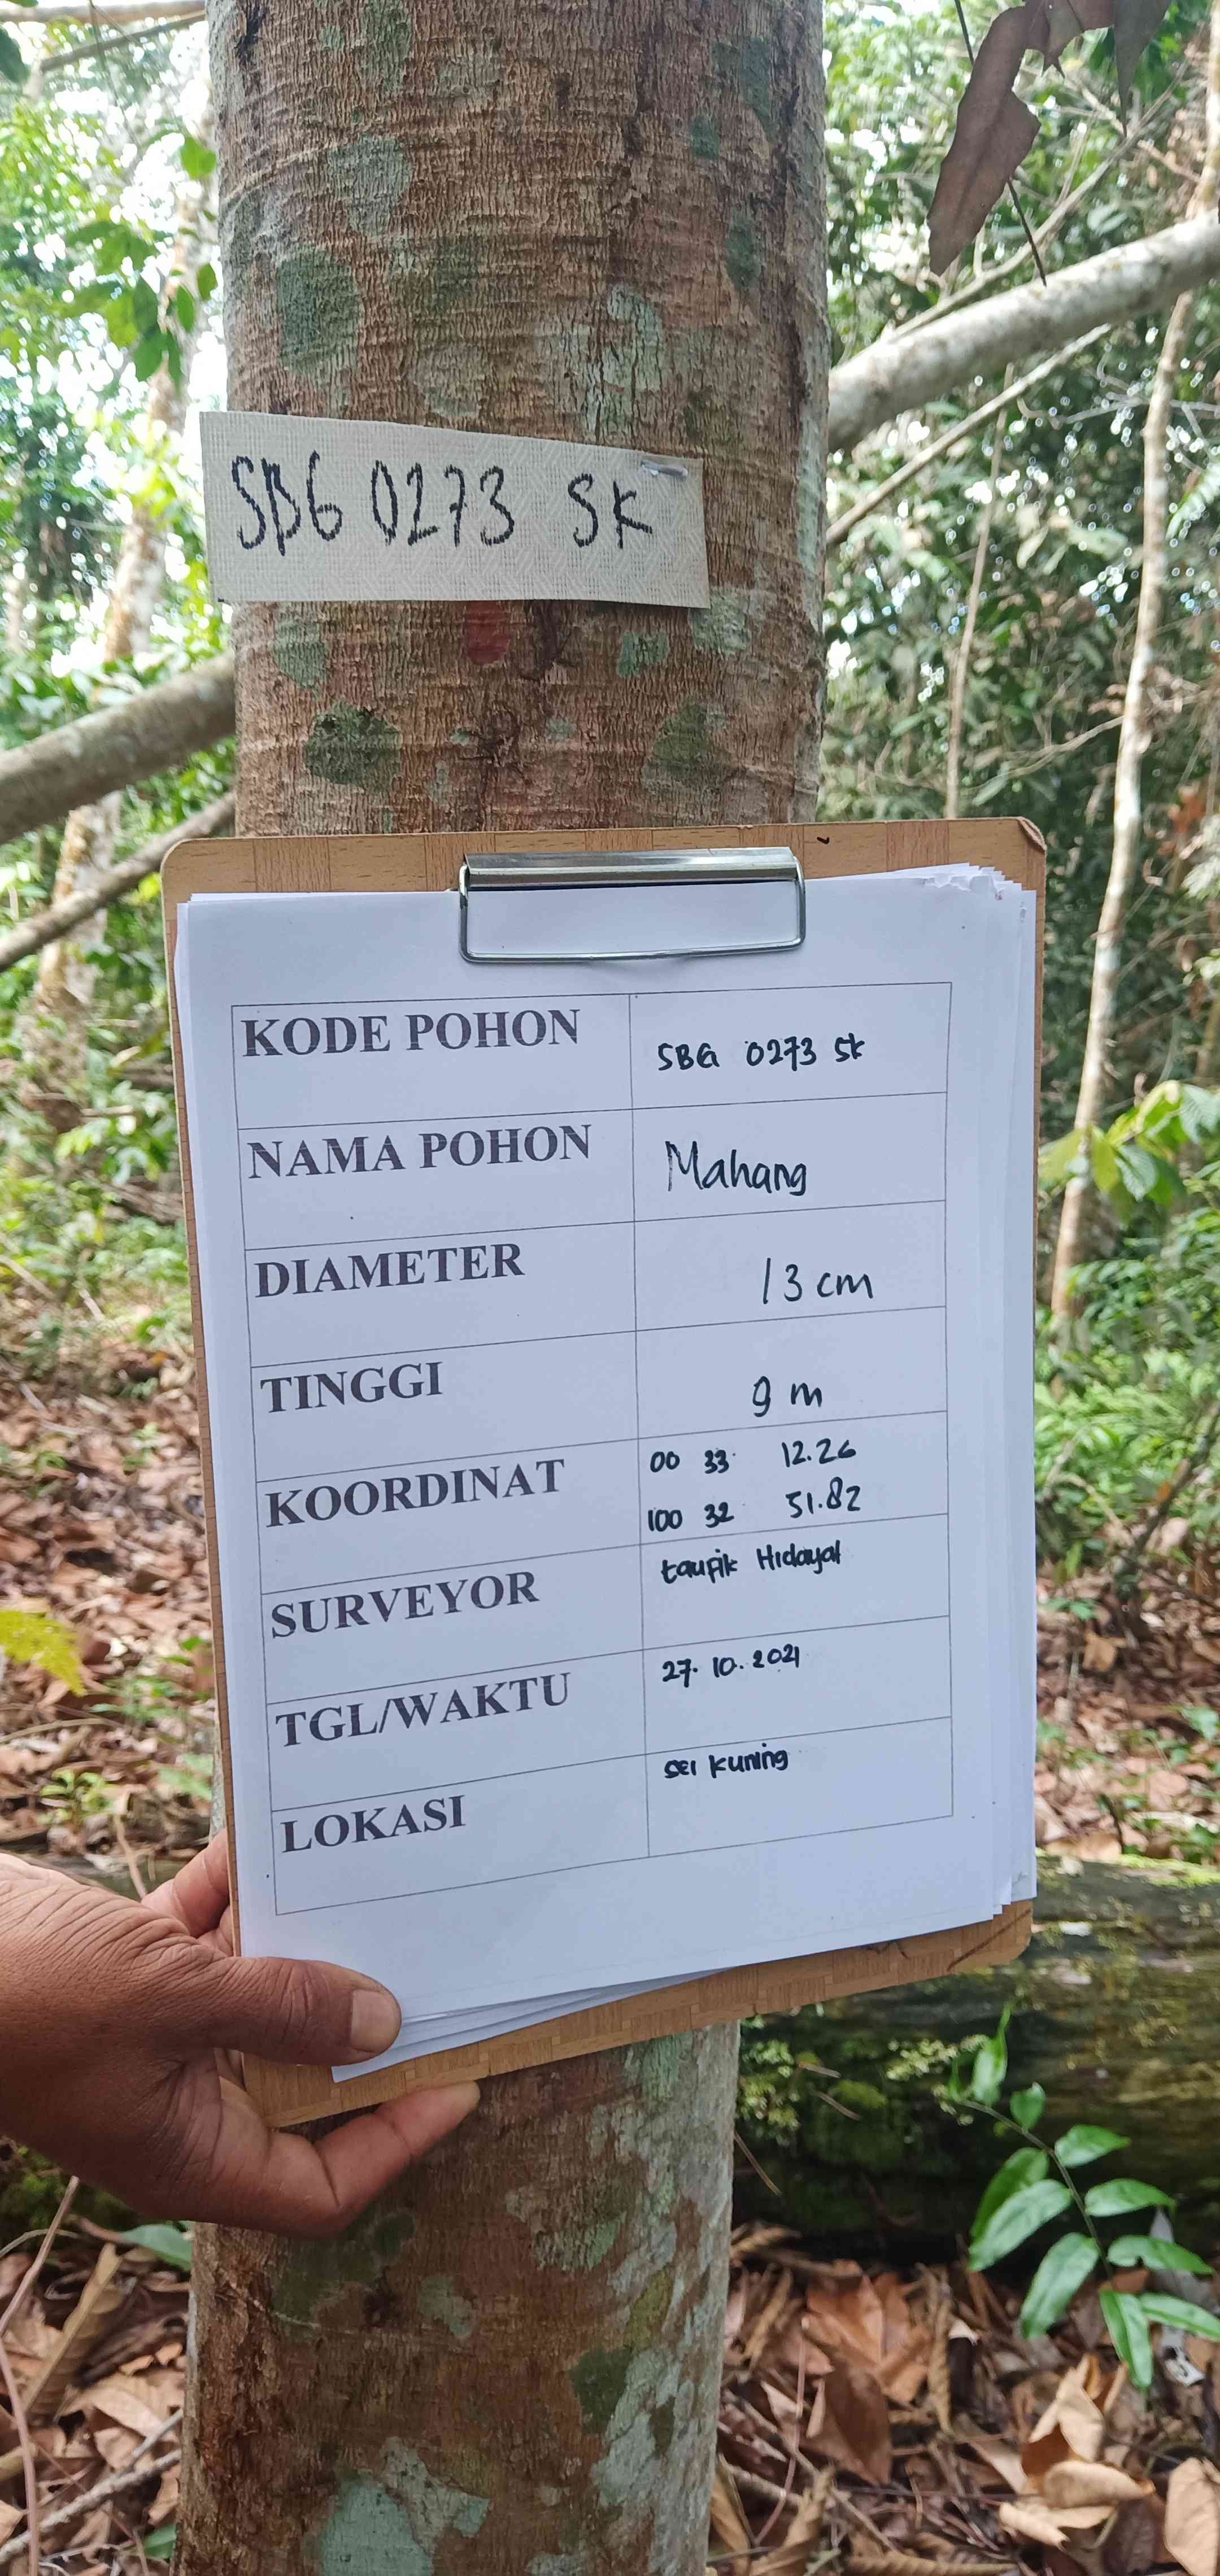 SBG 0273 SK
KODE POHON SBG 0273 SK
NAMA POHON Mahang
DIAMETER 13 cm
TINGGI 9 m
KOORDINAT 00 33 12.26
100 32 51.82
SURVEYOR taufik Hidayat
TGL/WAKTU 27.10.2021
LOKASI sei kuning